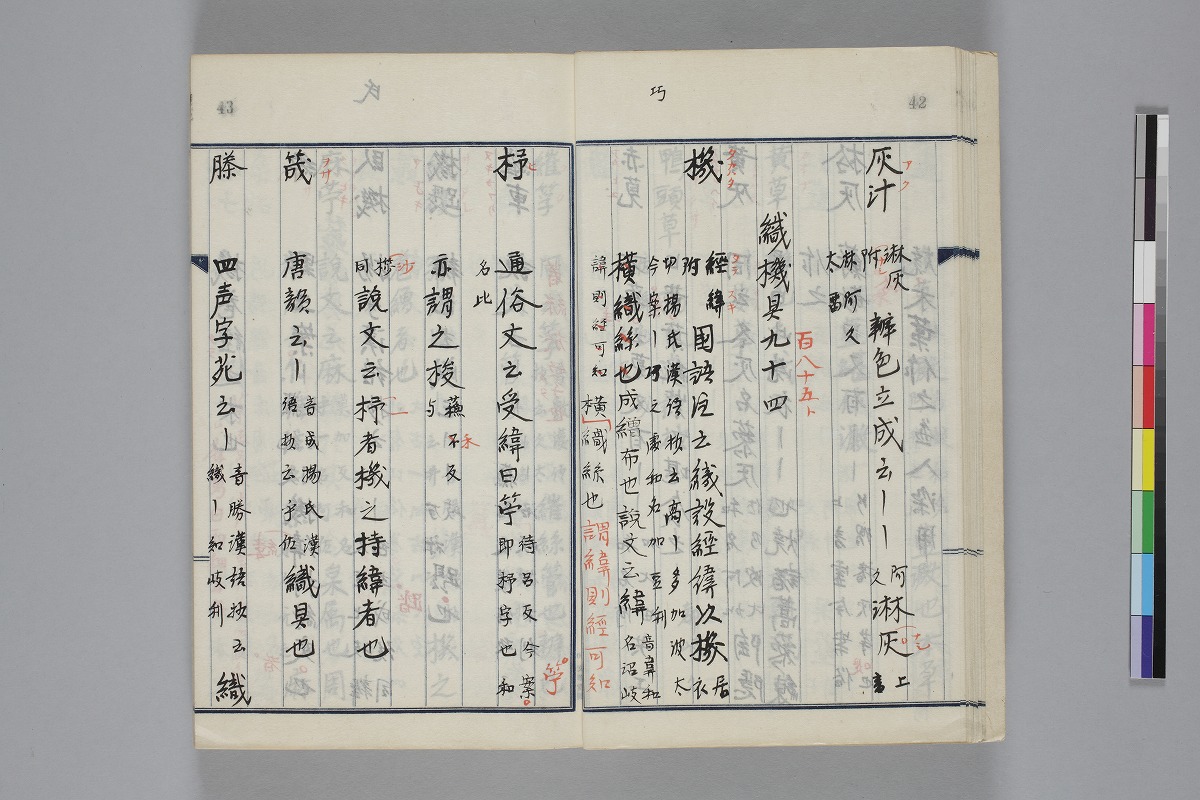 42
巧
灰汁 アク 淋灰 附 林阿久 太 辨色立成云丨丨 阿久 淋灰 上
織機具九十四 百八十五ト
機 タカハタ 經緯 附 タテ ヌキ 國語注云織設經緯以機 居衣
切楊氏漢語抄云高丨多加波太
今案丨巧之處和名加豆利
橫織絲也成繒布也說文云緯 音韋和名沼岐
諱則經可知橫織絲也 謂緯則經可知
43
氏
杼 ヒ 通俗文云受緯曰䇡 待呂反今案即杼字也和
名比
亦謂之梭 蘓禾反 不 与
同 說文云杼者機之持緯者也
筬 ヲサ 唐韻云丨 音成楊氏漢語抄云乎佐 織具也
縢 四声字苑云丨 音勝漢語抄云織丨和岐利 織